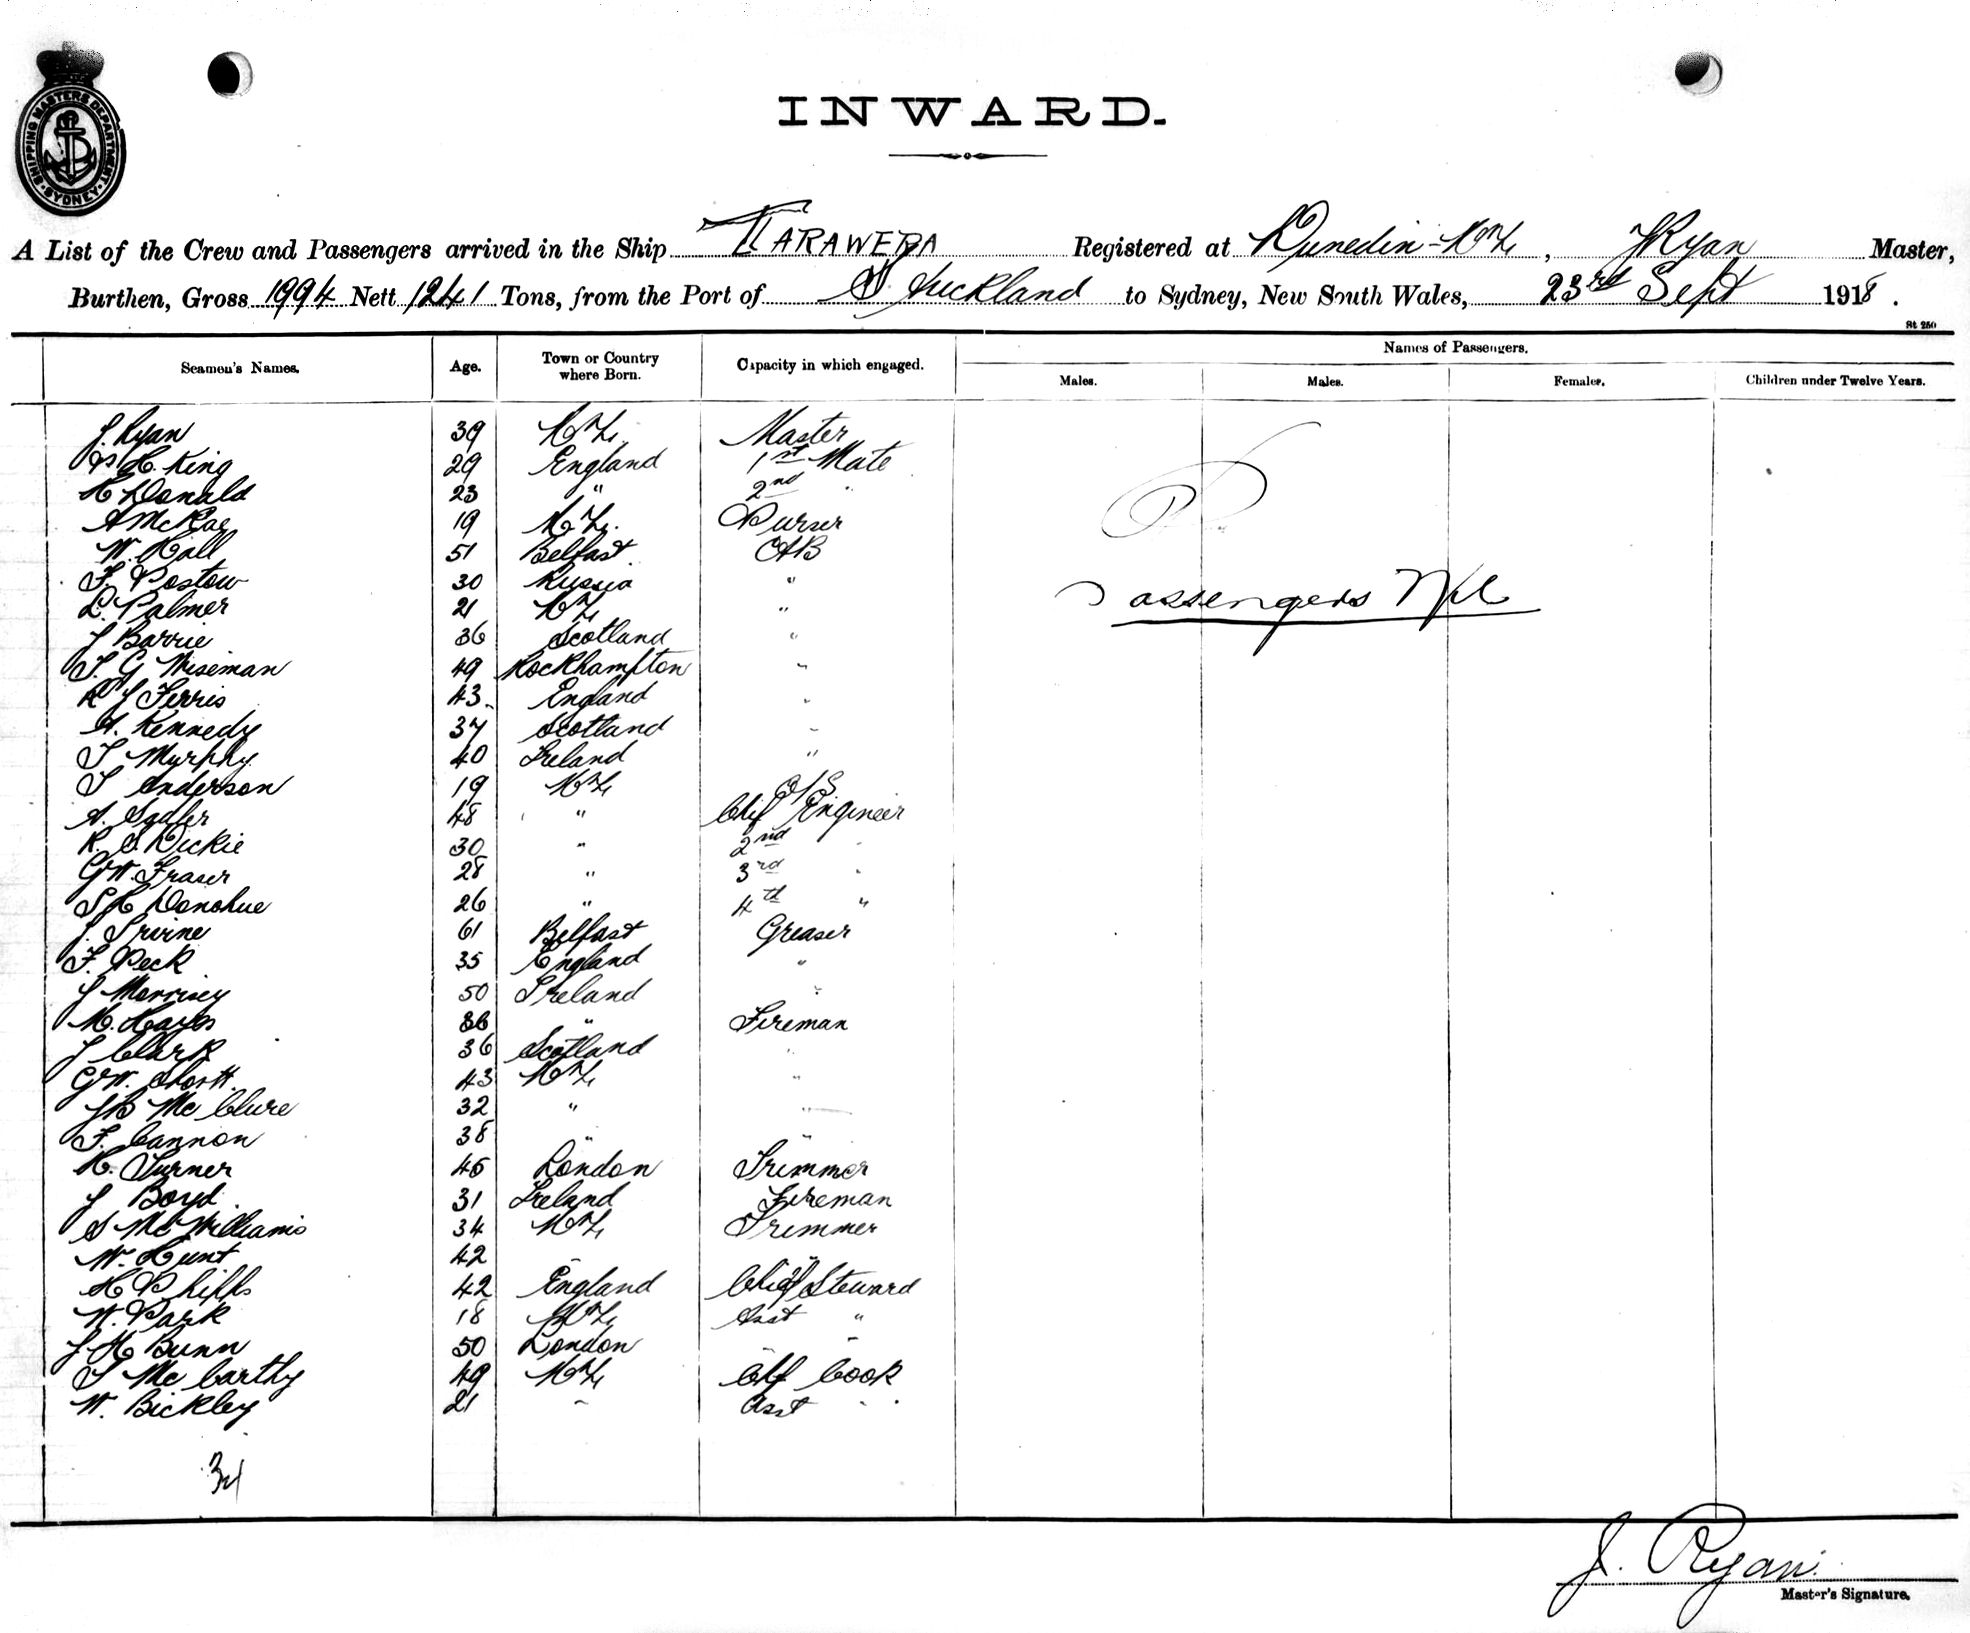 SHIPPING MASTERS DEPARTMENT. SYDNEY.
INWARD.
A List of the Crew and Passengers arrived in the Ship TARAWERA Registered at Dunedin N.Z. , J Ryan Master,
Burthen, Gross 1994 Nett 1241 Tons, from the Port of Auckland to Sydney, New South Wales, 23rd Sept 1918.
St 250
Seamen's Names. Age. Town or Country where Born. Capacity in which engaged. Names of Passengers.
Males. Males. Females. Children under Twelve Years.
J. Ryan 39 N.Z. Master
H. King 29 England 1st Mate
H Donald 23 " 2nd "
A McRae 19 N.Z. Purser
W. Hall 51 Belfast AB
F. Postow 30 Russia "
L. Palmer 21 N.Z. "
Passengers Nil
J Barrie 36 Scotland "
T. G Wiseman 49 Rockhampton "
R J Ferris 43 England "
A. Kennedy 37 Scotland "
T Murphy 40 Ireland "
T Anderson 19 N.Z. O/S
A. Sadler 48 " Chief Engineer
R. S Dickie 30 " 2nd "
G W. Fraser 28 " 3rd "
S H Donohue 26 " 4th "
J. Irvine 61 Belfast Greaser
F. Peck 35 England "
J Morrisey 50 Ireland "
M. Hayes 36 " Fireman
J Clark 36 Scotland "
G W. Shortt. 43 N.Z. "
J B Mc Clure 32 " "
F. Cannon 38 " "
H. Turner 45 London Trimmer
J Boyd 31 Ireland Fireman
S Mc Williams 34 N.Z. Trimmer
W. Hunt 42 " "
H Phipps 42 England Chief Steward
W. Park 18 N.Z. Asst "
J H Bunn 50 London "
T Mc Carthy 49 N.Z. Chf Cook
W. Bickley 21 " Asst "
34
J. Ryan.
Master's Signature.